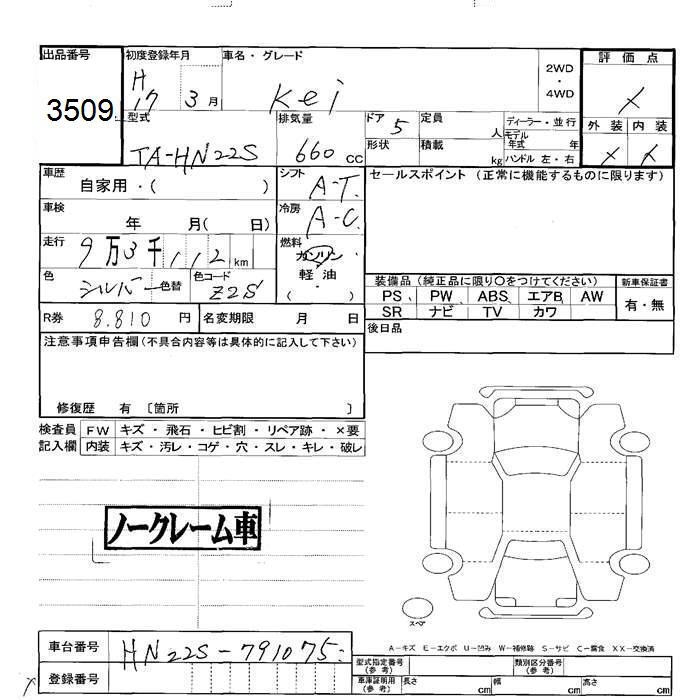 出品番号
3509
初度登録年月
H 17 3月
車名・グレード
Kei
2WD
・
4WD
評価点
外装 内装
型式
TA-HN22S
排気量
660cc
ドア
5
形状
定員
人
積載
kg
ディーラー・並行
モデル年式 年
ハンドル 左・右
車歴
自家用・( )
シフト
A-T.
セールスポイント (正常に機能するものに限ります)
車検
年 月( 日)
冷房
A-C.
走行
9万3千112km
燃料
ガソリン
軽油
( ・ )
色
シルバー
色替
色コード
Z2S
装備品 (純正品に限り〇をつけてください)
PS、 PW、 ABS、 エアB AW
SR ナビ TV カワ
新車保証書
有・無
R券
8.810 円
名変期限 月 日
後日品
注意事項申告欄(不具合内容等は具体的に記入して下さい)
修復歴 有 〔箇所 〕
検査員記入欄
FW キズ・飛石・ヒビ割・リペア跡・×要
内装 キズ・汚レ・コゲ・穴・スレ・キレ・破レ
ノークレーム車
スペア
A-キズ E-エクボ U-凹み W-補修跡 S-サビ C-腐食 XX-交換済
車台番号
HN22S-791075
登録番号
型式指定番号(参考)
類別区分番号(参考)
車庫証明用(参考)
長さ cm
幅 cm
高さ cm